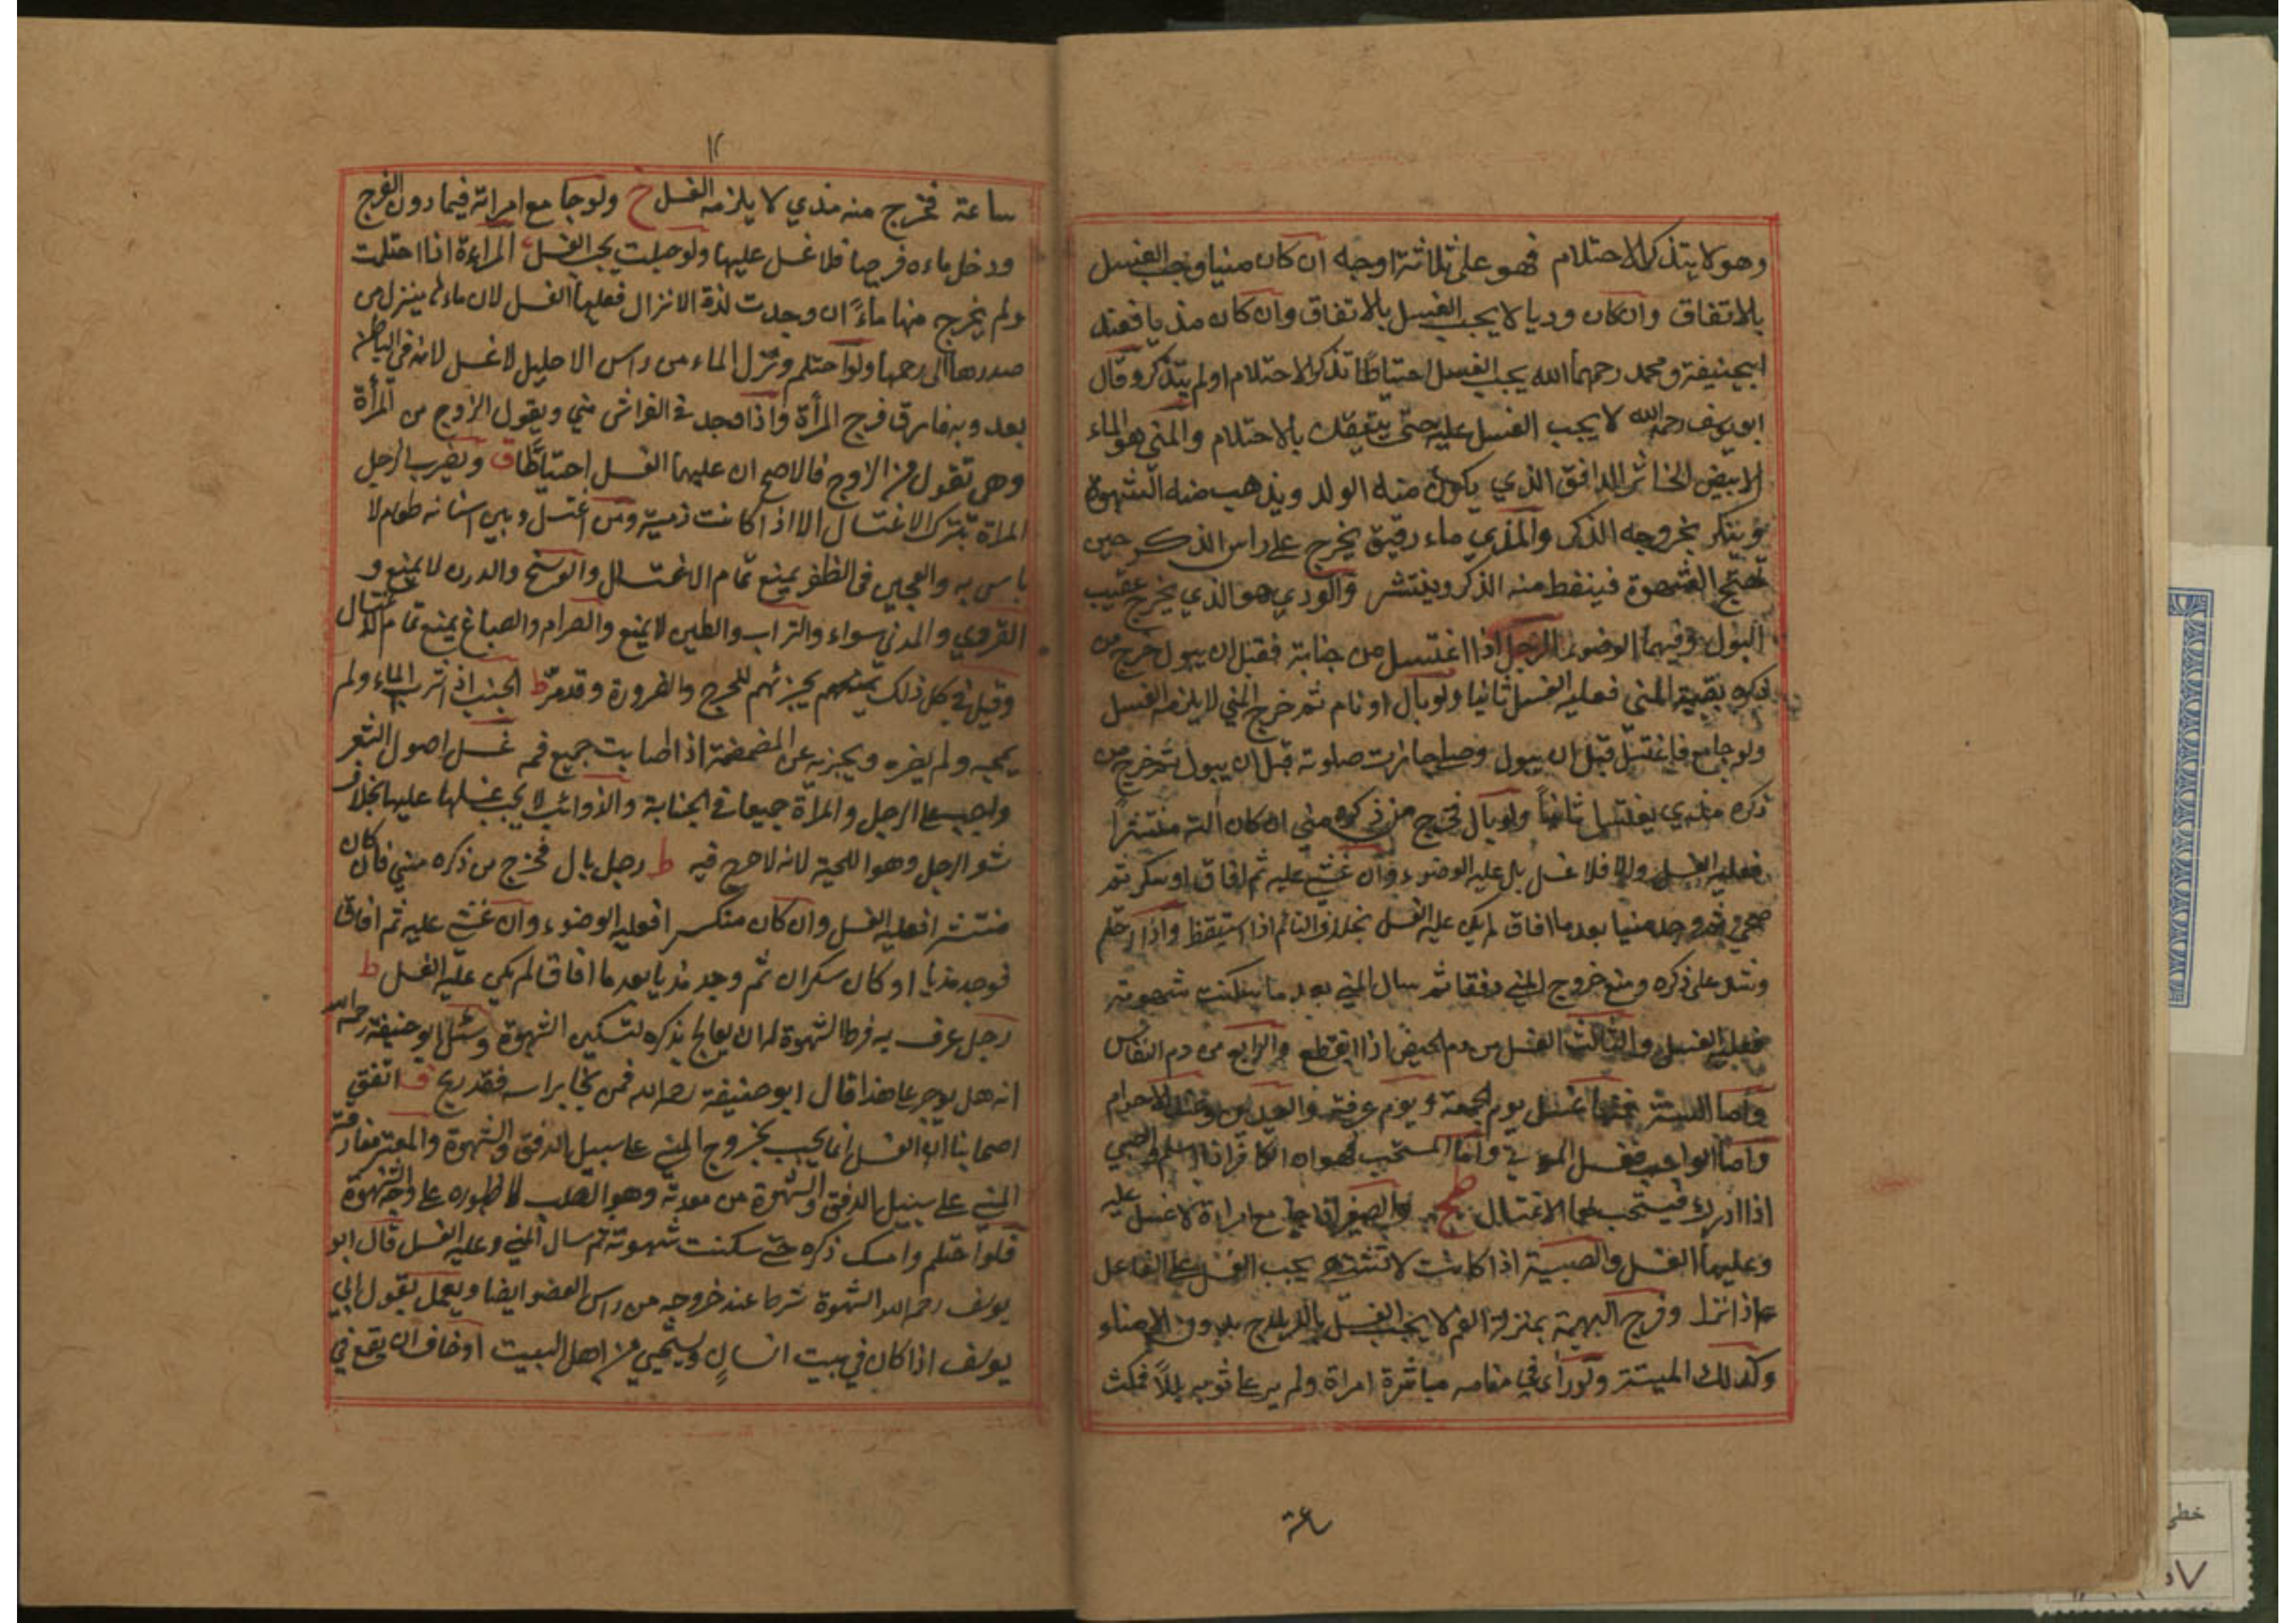 وهو لا يتذكر الاحتلام فهو على ثلاثة اوجه ان كان منيا وجب الغسل
بالاتفاق وان كان وديا لا يجب الغسل بالاتفاق وان كان مذيا فعند
ابيحنيفة ومحمد رحمهما الله يجب الغسل احتياطا تذكر الاحتلام او لم يتذكر وقال
ابو يوسف رحمه الله لا يجب الغسل عليه حتى يتيقن بالاحتلام والمني هو الماء
الابيض الخاثر الدافق الذي يكون منه الولد ويذهب منه الشهوة
وينكر بخروجه الذكر والمذي ماء رقيق يخرج على راس الذكر حين
الشهوة فينفط منه الذكر وينتشر والودي هو الذي يخرج عقيب
البول وفيهما الوضوء الرجل اذا اغتسل من جنابة فقبل ان يبول خرج من
ذكره بقية المني فعليه الغسل ثانيا ولو بال او نام ثم خرج المني لا يلزمه الغسل
ولو جامع فاغتسل قبل ان يبول وصلى جازت صلوته قبل ان يبول ثم خرج من
ذكره مذي يغتسل ثانياً ولو بال فخرج من ذكره مني ان كان آلته منتشراً
فعليه الغسل والا فلا غسل بل عليه الوضوء وان غشي عليه ثم افاق او سكر ثم
صحى ثم وجد منيا بعد ما افاق لم يكن عليه الغسل بخلاف النائم اذا استيقظ واذا احتلم
وشد على ذكره ومنع خروج المني دفقا ثم سال المني بعد ما سكنت شهوته
فعليه الغسل والثالث الغسل من دم الحيض اذا انقطع والرابع من دم النفاس
واما السنة فمنها غسل يوم الجمعة ويوم عرفة والعيدين وغسل الاحرام
واما الواجب فغسل الموتى واما المستحب فهو ان الكافر اذا اسلم والصبي
اذا ادرك فيستحب لهما الاغتسال والصغير اذا جامع امراة لا غسل عليه
وعليها الغسل والصبية اذا كانت لا تشتهى يجب الغسل على الفاعل
اذا انزل وفرج البهيمة بمنزلة الفم لا يجب الغسل بالايلاج بدون الامناء
وكذلك الميتة ولو رأى في منامه مباشرة امراة ولم ير على ثوبه بللاً فمكث
ساعة
١٢
ساعة فخرج منه مذي لا يلزمه الغسل خ ولو جامع امراته فيما دون الفرج
ودخل ماءه فرجها فلا غسل عليها ولو حبلت يجب الغسل المراءة اذا احتلمت
ولم يخرج منها ماءً ان وجدت لذة الانزال فعليها الغسل لان ماءها ينزل من
صدرها الى رحمها ولو احتلم ونزل الماء من راس الاحليل لا غسل لانه في الباطن
بعد وبه فارق فرج المرأة واذا وجد في الفراش مني ويقول الزوج من المرأة
وهي تقول من الزوج فالاصح ان عليهما الغسل احتياطا ق ويضرب الرجل
المراة بترك الاغتسال الا اذا كانت ذمية ومن اغتسل وبين اسنانه طعام لا
باس به والعجين في الظفر يمنع تمام الاغتسال والوسخ والدرن لا يمنع و
القروي والمدني سواء والتراب والطين لا يمنع والصرام والصباغ يمنع تمام الاغتسال
وقيل في كل ذلك يجزئهم للحرج والضرورة وقد مرّ ط الجنب اذا شرب الماء ولم
يمجه ولم يضره ويجزيه عن المضمضة اذا اصابت جميع فمه غسل اصول الشعر
واجب على الرجل والمرأة جميعا في الجنابة والذوائب لا يجب غسلها عليها بخلاف
شعر الرجل وهو اللحية لانه لا حرج فيه ط رجل بال فخرج من ذكره مني فان كان
منتشرا فعليه الغسل وان كان منكسرا فعليه الوضوء وان غشي عليه ثم افاق
فوجد مذيا او كان سكران ثم وجد مذيا بعد ما افاق لم يكن عليه الغسل ط
رجل عرف به فرط الشهوة له ان يعالج بذكره لتسكين الشهوة وسئل ابو حنيفة رحمه الله
انه هل يوجر على هذا قال ابو حنيفة رحمه الله فمن نجا براسه فقد ربح ف اتفق
اصحابنا ان الغسل انما يجب بخروج المني على سبيل الدفق والشهوة والمعتبر مفارقة
المني على سبيل الدفق والشهوة من معدنه وهو الصلب لا ظهوره على وجه الشهوة
فلو احتلم وامسك ذكره حتى سكنت شهوته ثم سال المني وعليه الغسل قال ابو
يوسف رحمه الله الشهوة شرط عند خروجه من راس العضو ايضا ويعمل بقول ابي
يوسف اذا كان في بيت انسانٍ ويستحيي من اهل البيت او خاف ان يقع في
خطي